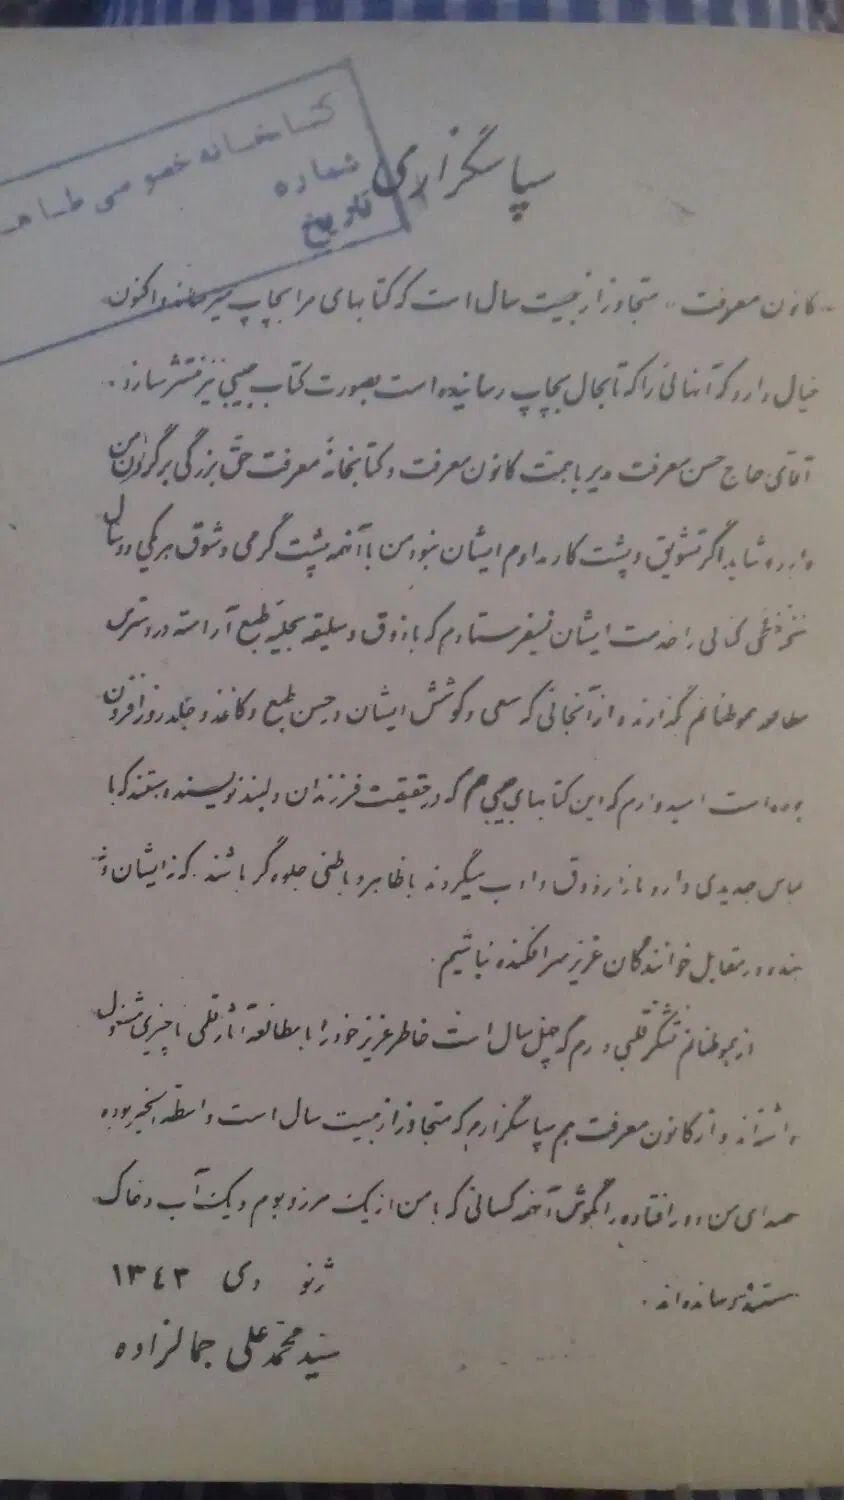 کتابخانه خصوصی طاهـ
شماره
تاریخ
سپاسگزاری
«کانون معرفت» متجاوز از بیست سال است که کتابهای مرا بچاپ میرساند و اکنون
خیال دارد که آنهائی را که تابحال بچاپ رسانیده است بصورت کتاب جیبی نیز منتشر سازد.
آقای حاج حسن معرفت مدیر باهمت کانون معرفت و کتابخانهٔ معرفت حقّ بزرگی بر گردن من
دارد و شاید اگر تشویق و پشت کار مداوم ایشان نبود من با آنهمه پشت گرمی و شوق هر یکی دو سال
نسخهٔ خطی کتابی را خدمت ایشان نمیفرستادم که با ذوق و سلیقه بحلیهٔ طبع آراسته در دسترس
مطالعهٔ هموطنانم بگذارند و از آنجائی که سعی و کوشش ایشان در حسن طبع و کاغذ و جلد روزافزون
بوده است امیدوارم که این کتابهای جیبی هم که در حقیقت فرزندان دلبند نویسنده هستند که با
لباس جدیدی وارد بازار ذوق و ادب میگردند با ظاهر و باطنی جلوه گر باشند که نه ایشان و نه
بنده در مقابل خوانندگان عزیز سرافکنده نباشیم.
از هموطنانم تشکّر قلبی دارم که چهل سال است خاطر عزیز خود را با مطالعهٔ آثار قلمی ناچیزی مشغول
داشته‌اند و از کانون معرفت هم سپاسگزارم که متجاوز از بیست سال است واسطة الخیر بوده
صدای من دور افتاده را بگوش آنهمه کسانی که با من از یک مرز و بوم و یک آب و خاک
هستند رسانده‌اند.
ژنو دی ۱۳۴۳
سیّد محمّد علی جمالزاده